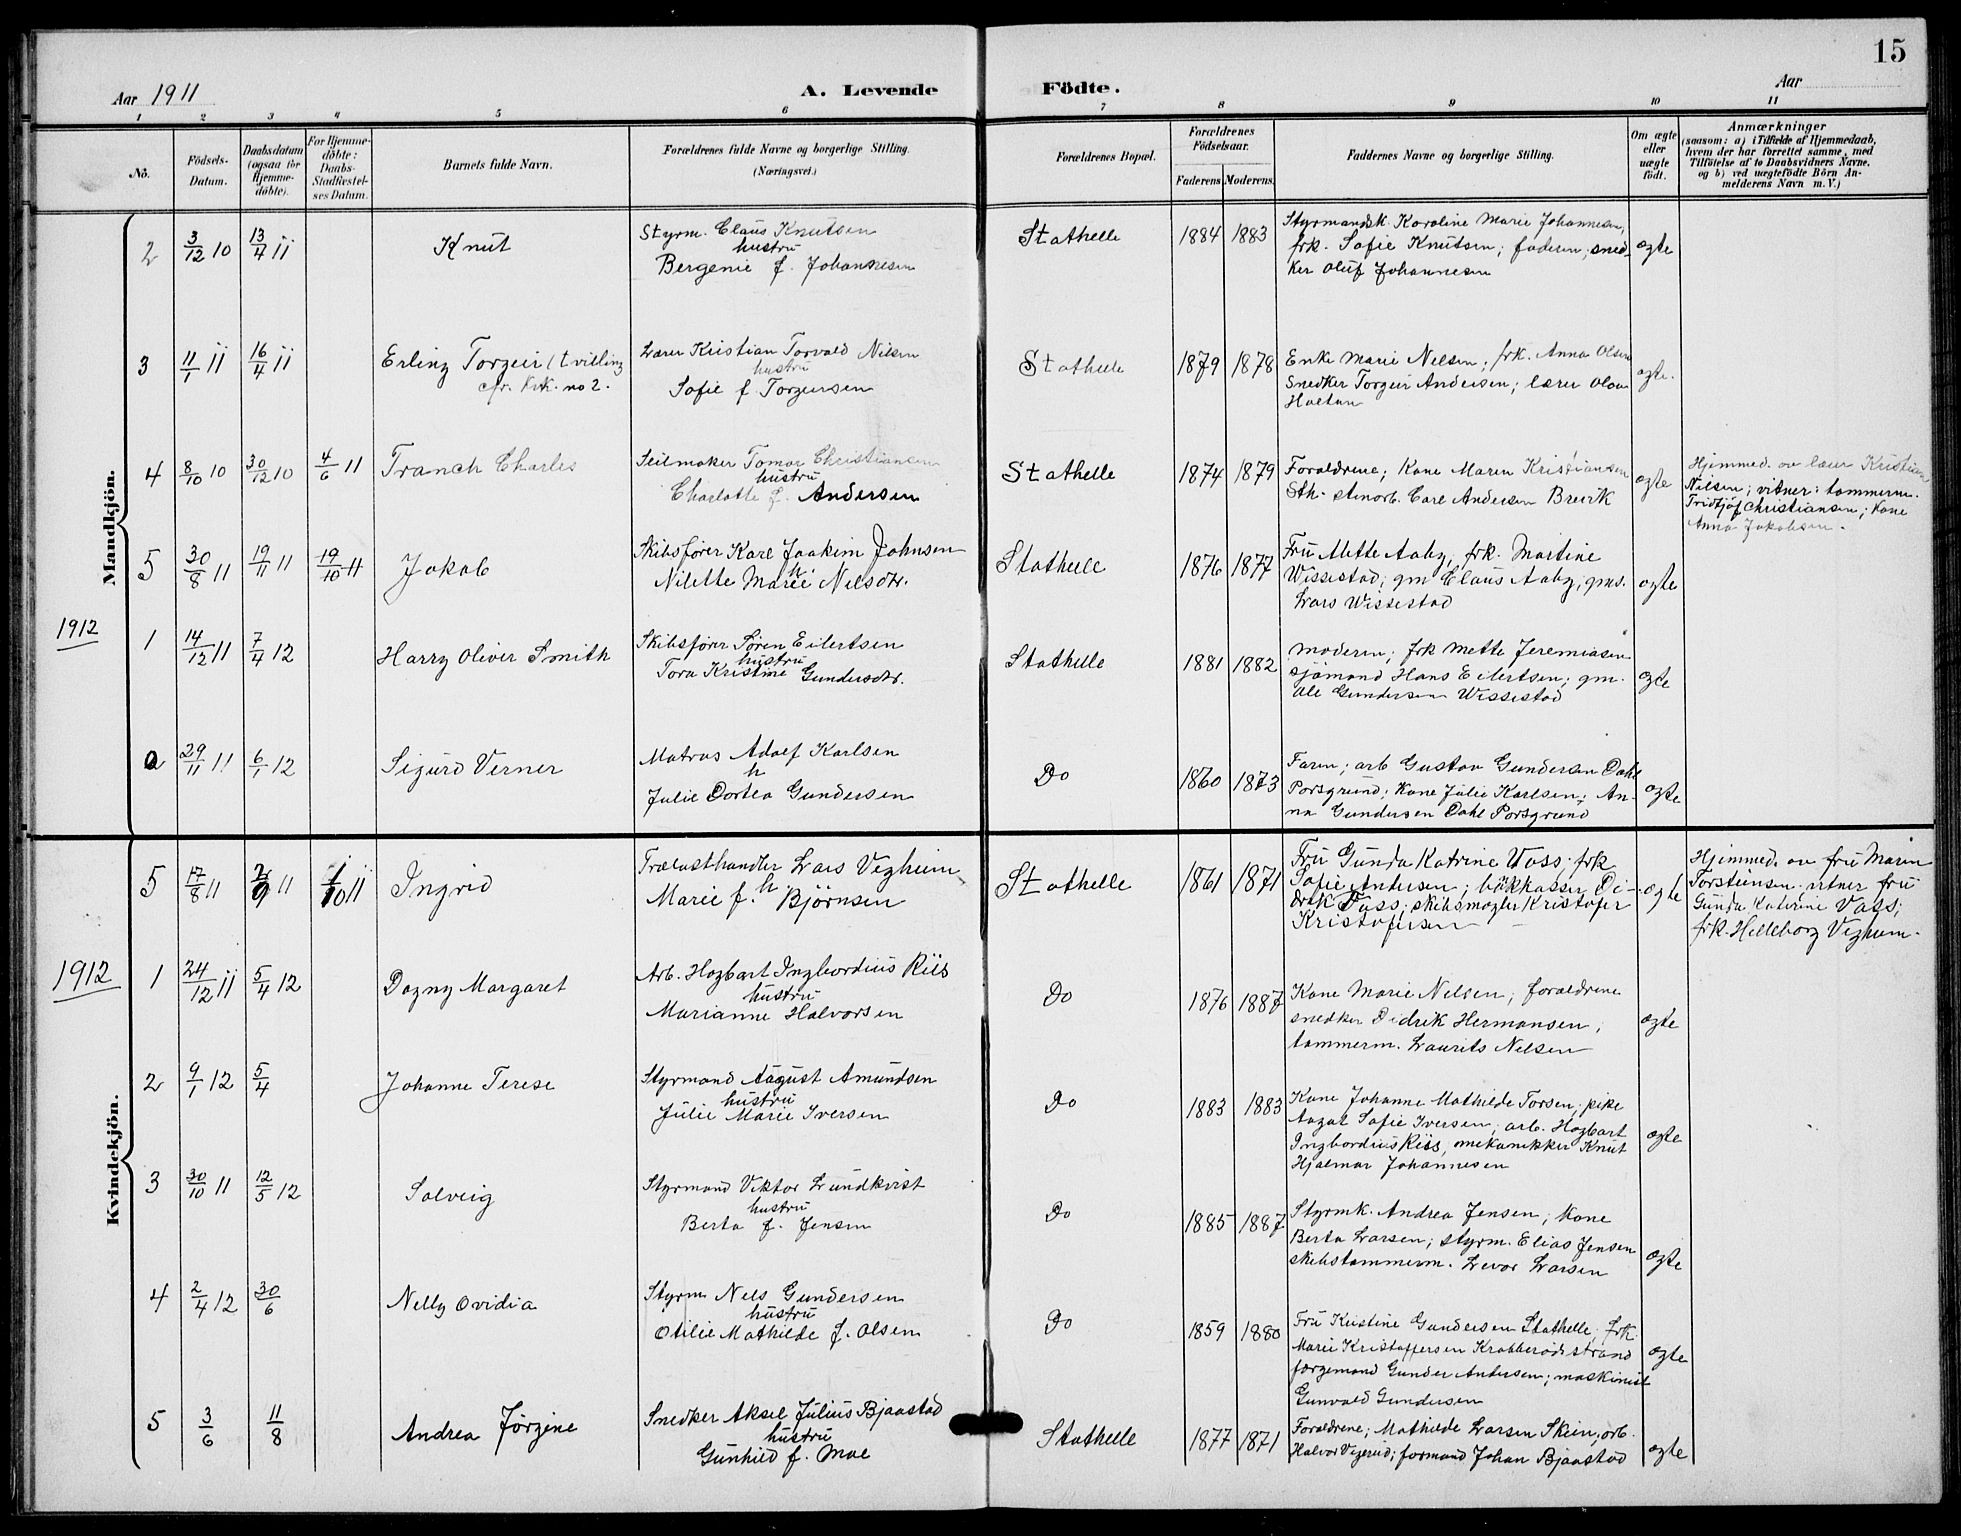 15
Aar 1911
A. Levende
Födte.
Aar
1 2 3 4 5 6 7 8 9 10 11
No.
Födsels-
Datum.
Daabsdatum
(ogsaa for
Hjemme-
döbte).
For Hjemme-
döbte:
Daabs-
Stadfæstel-
ses Datum.
Barnets fulde Navn.
Forældrenes fulde Navne og borgerlige Stilling.
(Næringsvei.)
Forældrenes Bopæl.
Forældrenes
Födselsaar.
Faderens Moderens
Faddernes Navne og borgerlige Stilling.
Om ægte
eller
uægte
födt.
Anmærkninger
(saasom: a) i Tilfælde af Hjemmedaab,
hvem der har forrettet samme, med
Tilföielse af to Daabsvidners Navne,
og b) ved uægtefödte Börn An-
melderens Navn m. V.)
Mandkjön.
2 3/12 10 13/4 11 Knut
Styrm. Claus Knutsen
hustru
Bergenie f. Johannesen
Stathelle 1884 1883
Styrmandsk. Karoline Marie Johannesen,
frk. Sofie Knutsen; faderen, sned-
ker Oluf Johannesen
ægte
3 11/1 11 16/4 11 Erling Torgeir (tvilling
cfr. kvk. no 2.
Lærer Kristian Torvald Nilsen
hustru
Sofie f. Torgersen
Stathelle 1879 1878
Enke Marie Nelsen; frk. Anna Olsen
Snedker Torgeir Andersen; lærer Olav
Holtan
ægte.
4 8/10 10 30/12 10 4/6 11 Franch Charles
Seilmaker Tomar Christiansen
hustru
Charlotte f. Andersen
Stathelle 1874 1879
Forældrene; Kone Maren Kristiansen
Sth. stenarb. Carl Andersen Brevik
ægte
Hjemmed. av lærer Kristian
Nilsen; vitner: tømmerm.
Fridtjof Christiansen; Kone
Anna Jakobsen.
5 30/8 11 19/11 11 19/10 11 Jakob
Skibsfører Karl Joakim Johnsen
h.
Nilette Marie Nilsdtr.
Stathelle 1876 1877
Fru Mette Aaby, frk. Martine
Wissestad; gm Claus Aaby; gms.
Lars Wissestad
ægte
1912
1 14/12 11 7/4 12 Harry Oliver Smith
Skibsfører Søren Eilertsen
hustru
Tora Kristine Gundersdtr.
Stathelle 1881 1882
Moderen; frk Mette Jeremiasen
sjømand Hans Eilertsen; gm.
Ole Gundersen Wissestad
ægte
2 29/11 11 6/1 12 Sigurd Verner
Matros Adolf Karlsen
h
Julie Dortea Gundersen
Do 1860 1873
Faren; arb Gustav Gundersen Dahl
Porsgrund; Kone Julie Karlsen; An-
na Gundersen Dahl Porsgrund
ægte
Kvindekjön.
5 17/8 11 2/9 11 1/10 11 Ingrid
Trælasthandler Lars Vegheim
h.
Marie f. Bjørnsen
Stathelle 1861 1871
Fru Gunda Katrine Vass; frk
Sofie Andersen; bokkasser Di-
drik Vass; skibsmægler Kristofer
Kristofersen
ægte
Hjemmed. av fru Maren
Torstensen. vitner fru
Gunda Katerine Vass;
frk. Helleborg Vegheim.
1912
1 24/12 11 5/4 12 Dagny Margaret
Arb. Hagbart Ingbordius Riis
hustru
Marianne Halvorsen
Do 1876 1887
Kone Marie Nelsen; forældrene
snedker Didrik Hermansen,
tømmerm. Laurits Nelsen
ægte
2 9/1 12 5/4 Johanne Terese
Styrmand August Amundsen
hustru
Julie Marie Iversen
Do 1883 1883
Kone Johanne Mathilde Torsen; pike
Aagat Sofie Iversen; arb. Hagbart
Ingbordius Riis, mekanikker Knut
Hjalmar Johannesen
ægte
3 30/10 11 12/5 12 Solveig
Styrmand Viktor Lundkvist
hustru
Berta f. Jensen
Do 1885 1887
Styrmk. Andrea Jensen; Kone
Berta Larsen; styrm. Elias Jensen
skibstømmerm. Levor Larsen
ægte
4 2/4 12 30/6 Nelly Ovidia
Styrm Nels Gundersen
hustru
Otilie Mathilde f. Olsen
Do 1859 1880
Fru Kristine Gundersen Stathelle; frk.
Marie Kristoffersen Krabberødstrand
færgemand Gunder Andersen; maskinist
Gunvald Gundersen
ægte
5 3/6 11/8 Andrea Jørgine
Snedker Aksel Julius Bjaastad
hustru
Gunhild f. Moe
Stathelle 1877 1871
Forældrene; Mathilde Larsen Skien; arb.
Halvor Vegerud; formand Johan Bjaastad
ægte